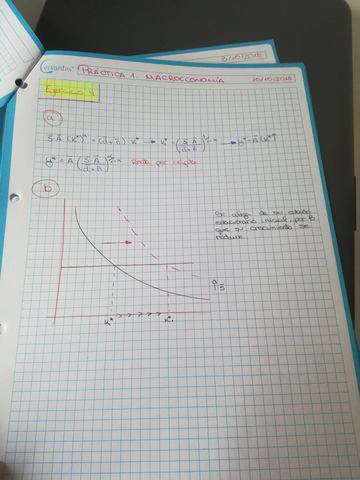 PRÁCTICA 1. MACROECONOMÍA
Ejercicio 4
a
s Ā (K*)^α = (d+n) K* → K* = (sĀ/d+n)^1/1-α → y* = Ā (K*)^α
y* = Ā (sĀ/d+n)^α/1-α Renta per cápita
b
Se aleja de su estado
estacionario inicial, por lo
que su crecimiento se
reduce
↑s
K* >>>>>> K*₁